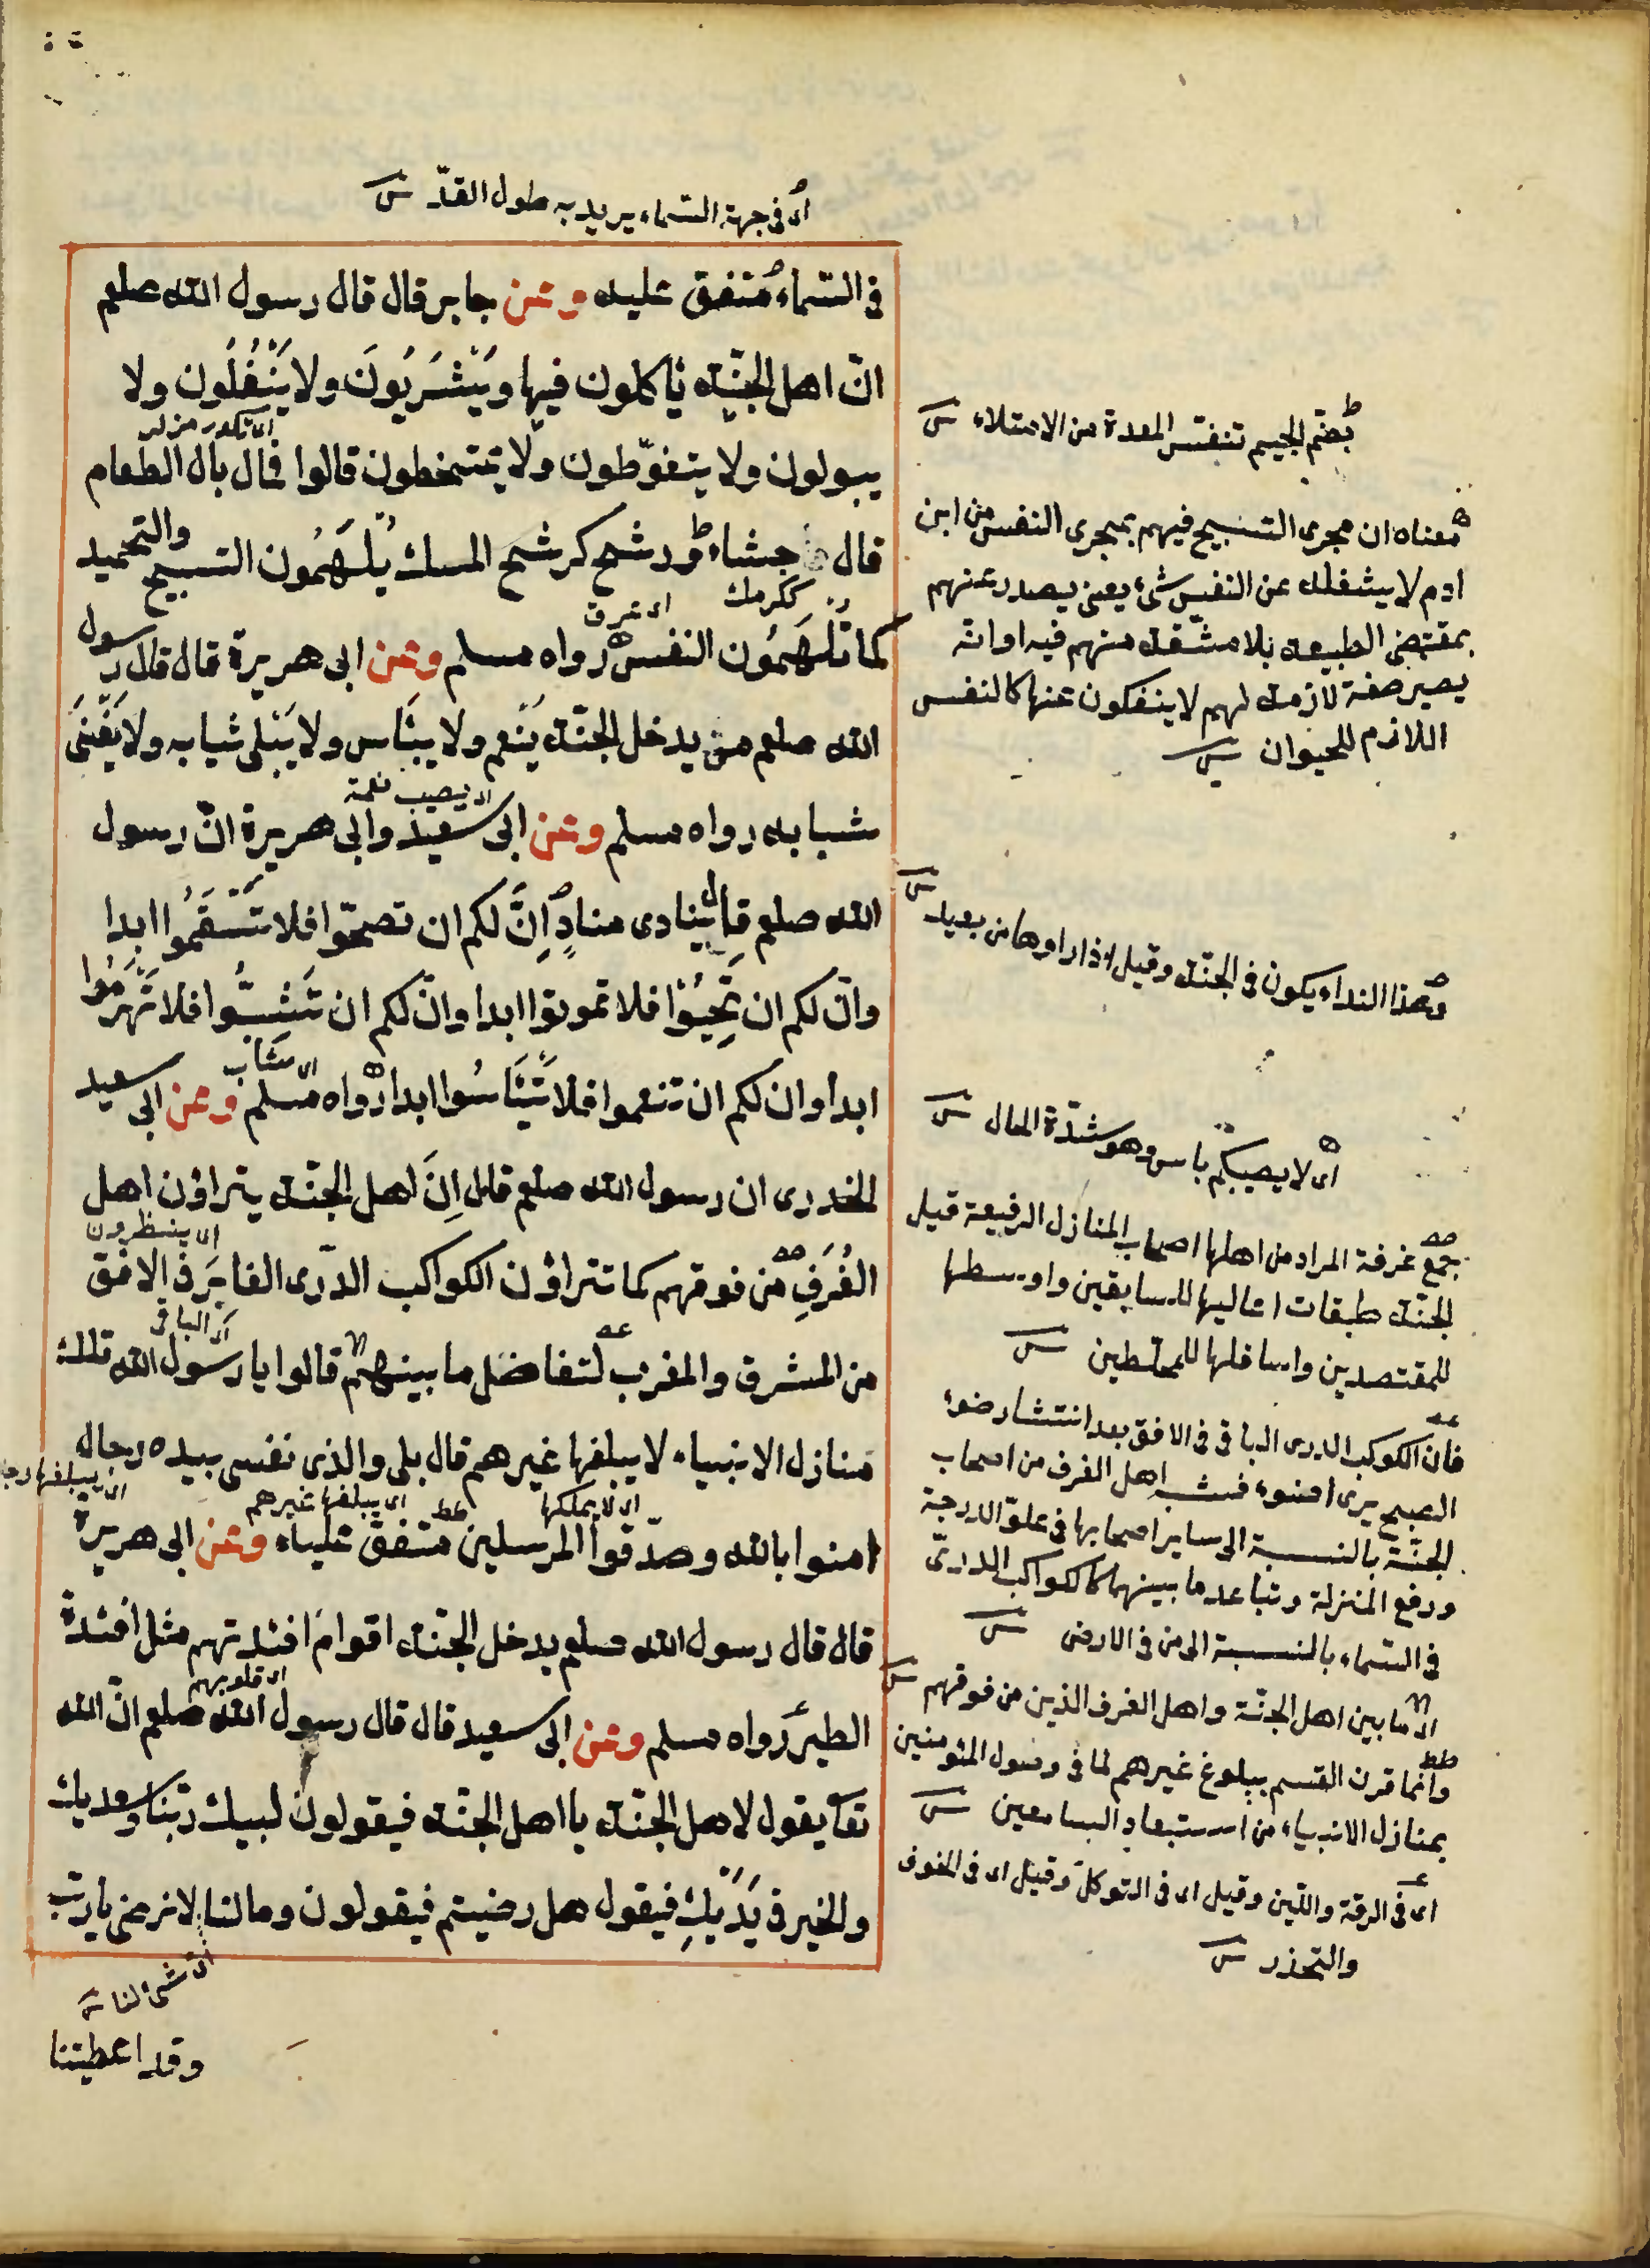 اى فى جهة السماء يريد به طول القدّ
فى السّماء متفق عليه وعن جابر قال قال رسول الله صلعم
انّ اهل الجنّة يأكلون فيها ويَشْرَبُونَ ولا يَتْفُلُون ولا
يبولون ولا يتغوّطون ولا يمتخطون قالوا فمال بال الطعام
قال جشاء ورشح كرشح المسك يُلْهَمُون التسبيح والتحميد
ككرمك
اى عرق
كما تُلْهَمُون النفس رواه مسلم وعن ابى هريرة قال قال رسول
الله صلعم من يدخل الجنّة يَنعم ولا يبْأس ولا يَبْلى ثيابه ولا يَفْنَى
شبابه رواه مسلم وعن ابى سعيد وابى هريرة انّ رسول
اى يصيب نعمة
الله صلعم قال ينادى منادٍ اِنَّ لكم ان تصحّوا فلا تَسْقَمُوا ابدا
وانّ لكم ان تَحْيَوْا فلا تموتوا ابدا وانّ لكم ان تَشِبُّوا فلا تَهْرَمُوا
ابدا وان لكم ان تنعموا فلا تَبْأَسُوا ابدا رواه مسلم وعن ابى سعيد
الخدرى ان رسول الله صلعم قال اِنَّ اهل الجنّة يتراؤن اهل
اى ينظرون
الغُرَفِ من فوقهم كما تتراؤن الكواكب الدّرى الغابرَ فى الافق
اى الباقى
من المشرق والمغرب لتفاضل ما بينهم قالوا يا رسول الله تلك
منازل الانبياء لا يبلغها غيرهم قال بلى والذى نفسى بيده رجال
اى لا يملكها
اى يبلغها غيرهم
امنوا بالله وصدّقوا المرسلين متفق عليه وعن ابى هريرة
قال قال رسول الله صلعم يدخل الجنّة اقوام افئدتهم مثل افئدة
اى قلوبهم
الطير رواه مسلم وعن ابى سعيد قال قال رسول الله صلعم انّ الله
تعا يقول لاهل الجنّة يا اهل الجنّة فيقولون لبيك ربّنا وسعديك
والخير فى يَدَيْكَ فيقول هل رضيتم فيقولون وما لنا لا نرضى يا ربّ
اى شئ لنا
وقد اعطيتنا
بضمّ الجيم تنفس المعدة من الامتلاء
معناه ان مجرى التسبيح فيهم بمجرى النفس من ابن
ادم لا يشغله عن النفس شئ يعنى يصدر عنهم
بمقتضى الطبيعة بلا مشقة منهم فيه او انه
يصير صفة لازمة لهم لا ينفكون عنها كالنفس
اللازم للحيوان
وهذا النداء يكون فى الجنّة وقيل اذا راوها من بعيد
اى لا يصيبكم باس وهو شدّة الحال
جمع غرفة المراد من اهلها اصحاب المنازل الرفيعة قيل
الجنّة طبقات اعاليها للسابقين واوسطها
للمقتصدين واسافلها للمخلطين
فان الكوكب الدرى الباقى فى الافق بعد انتشار ضوء
الصبح يرى اضوء فشبه اهل الغرف من اصحاب
الجنّة بالنسبة الى ساير اصحابها فى علوّ الدرجة
ورفع المنزلة وتباعد ما بينهما كالكواكب الدرىّ
فى السّماء بالنسبة الى من فى الارض
اى ما بين اهل الجنّة واهل الغرف الذين من فوقهم
وانّما قرن القسم ببلوغ غيرهم لما فى وصول المؤمنين
بمنازل الانبياء من استبعاد السامعين
اى فى الرقة واللّين وقيل اى فى التوكل وقيل اى فى الخوف
والتحذر